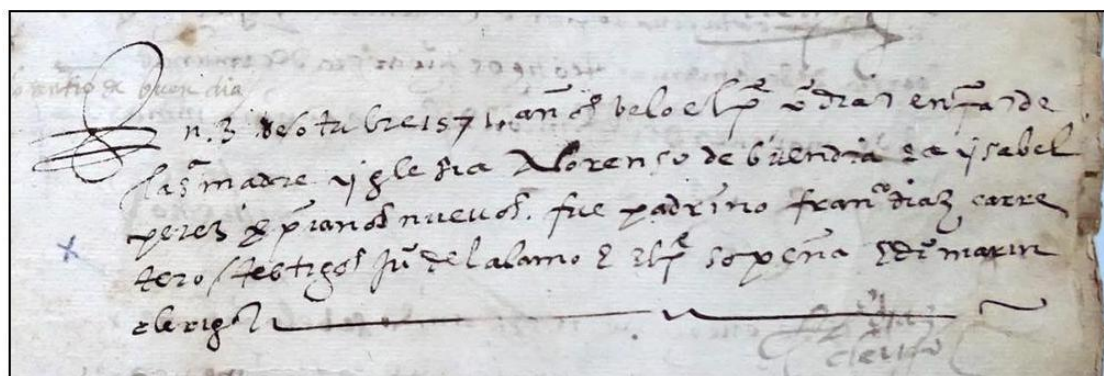 lorentio de buen dia
n. 3 de otubre 1571 años velo el p.e diaz en faz de
la s.ta madre yglesia A lorenso de buendia e a ysabel
perez xpianos nuevos. fue padrino fran.co diaz carre
tero / testigos ju.o del alamo e el p.e sopeña e di.o marin
clerigos
diaz
clerigo